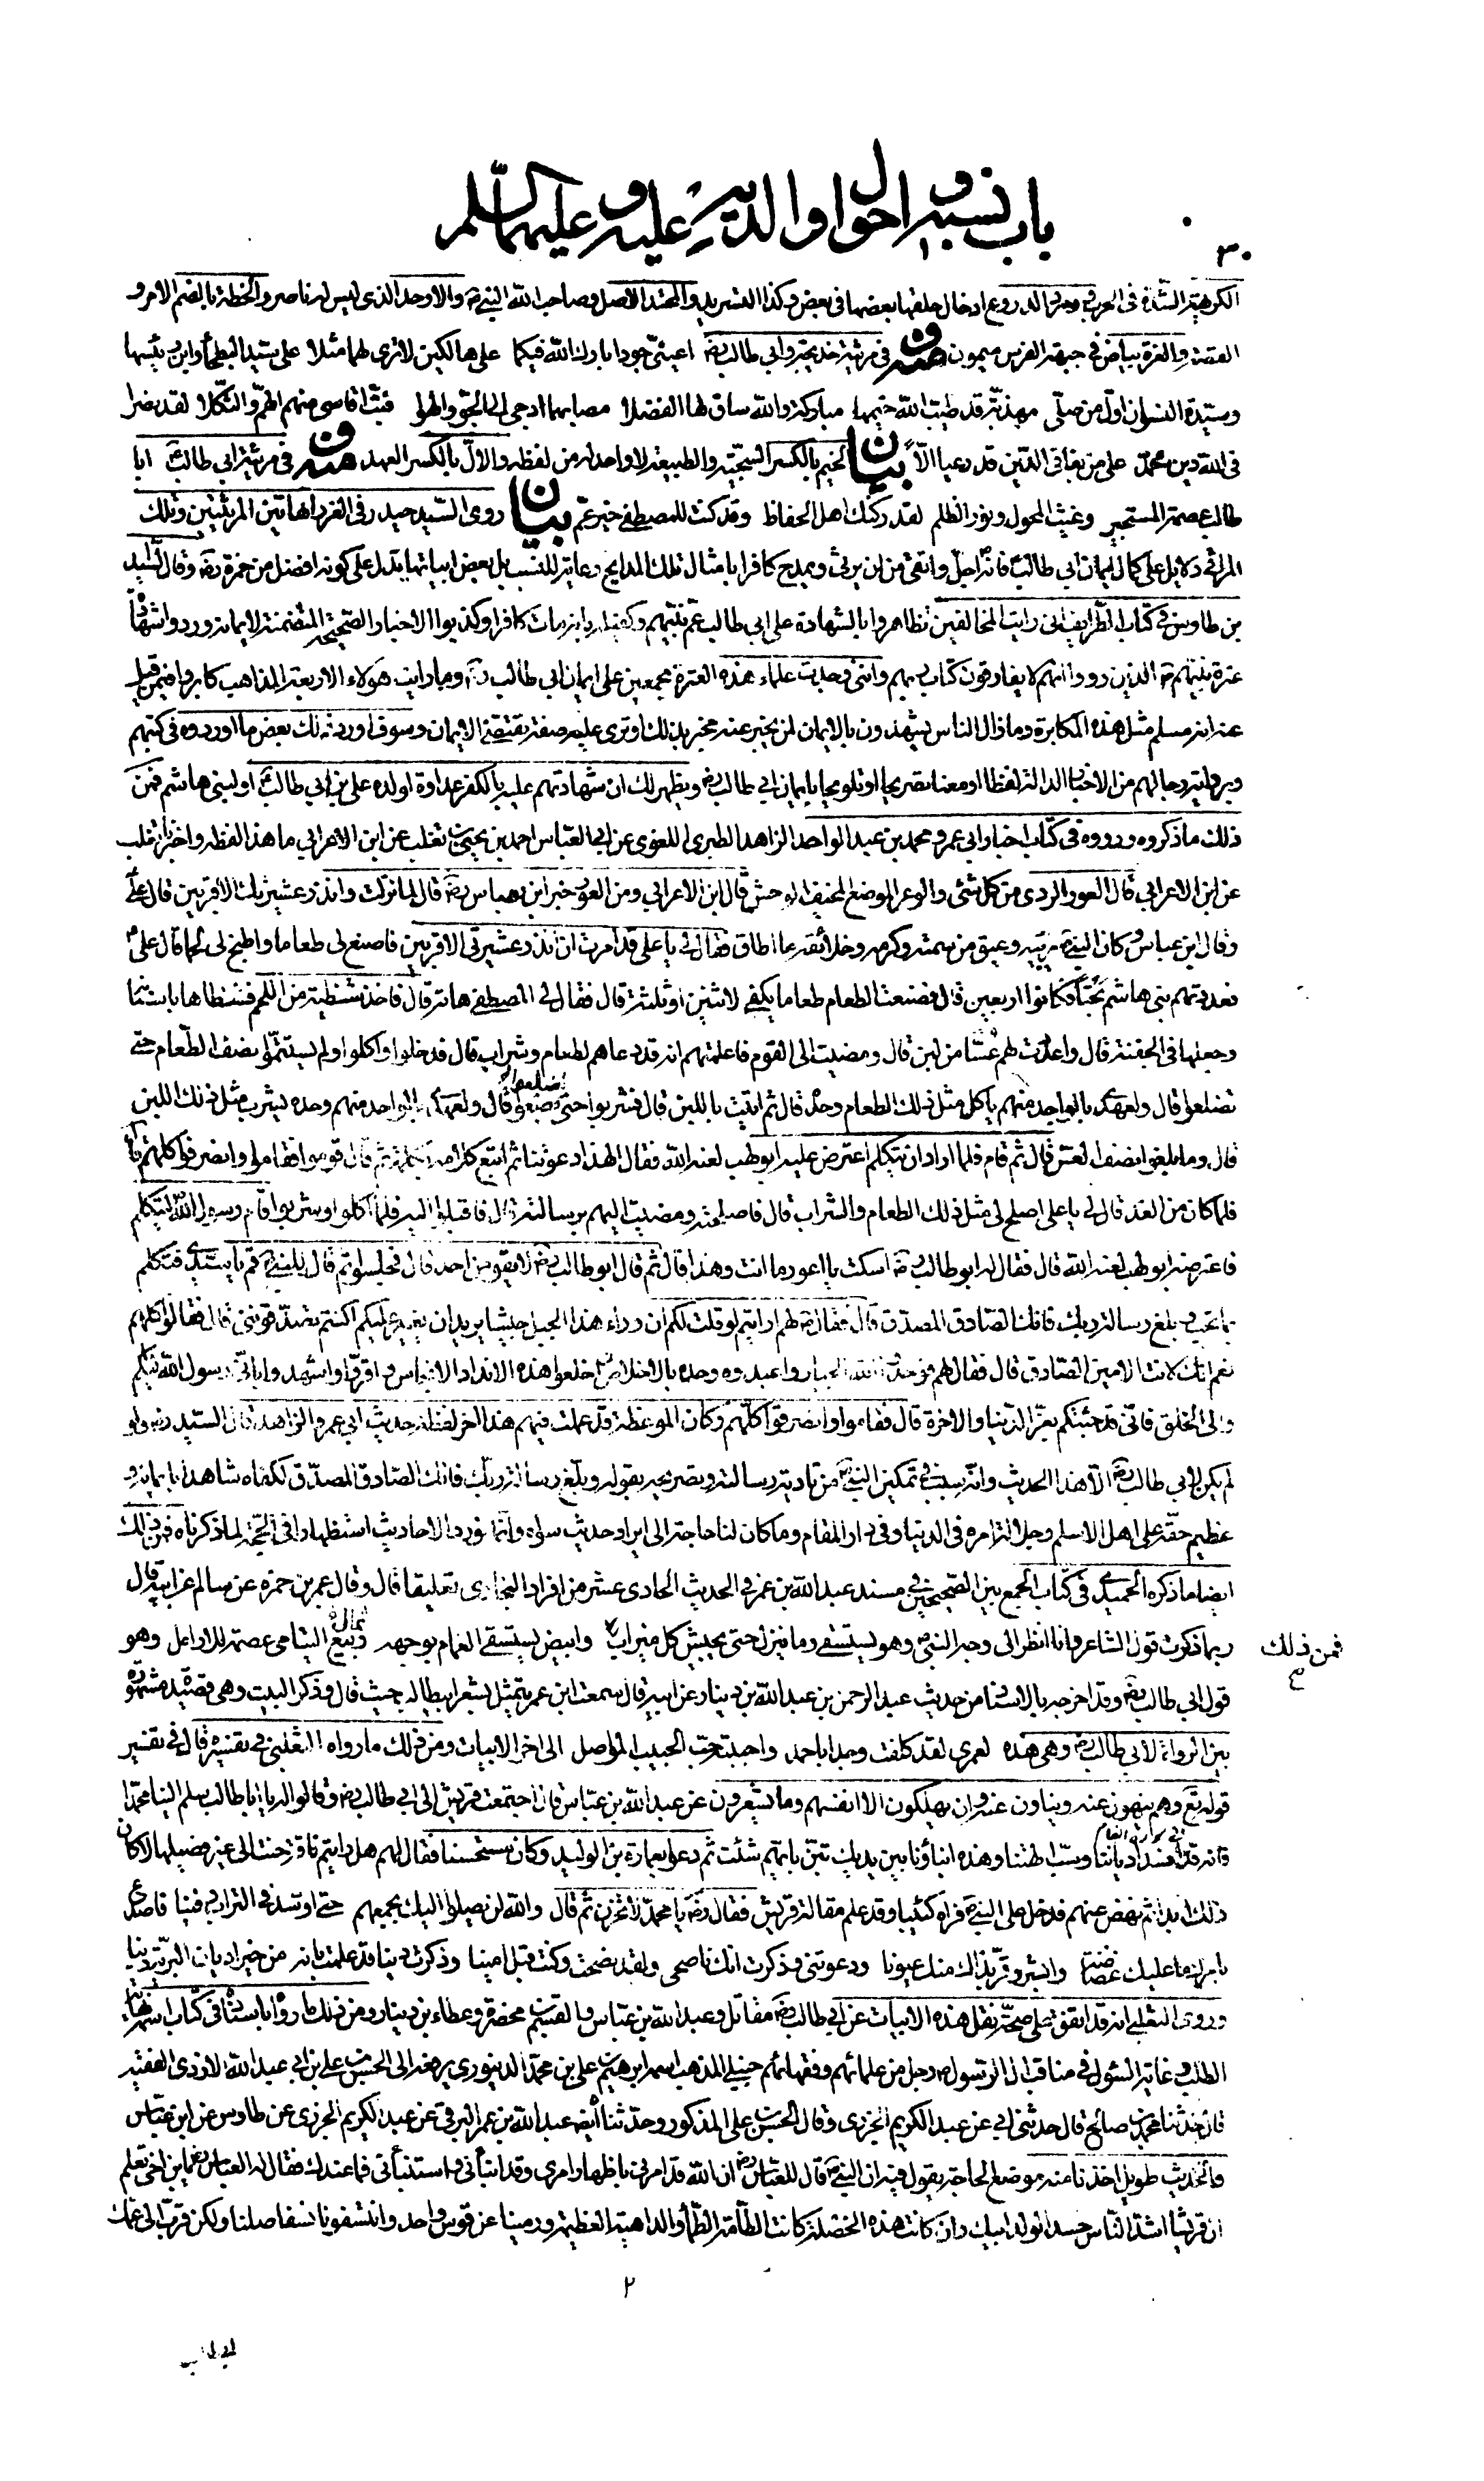 باب نسبه واحوال والديه عليه وعليهما السلم
٣٠
الكريهة الشدة في الحرب وسرد الدروع ادخال حلقها بعضها في بعض وكذا التسريد والمحتد الاصل وصاحب الله النبي ص والاوحد الذي ليس له ناصر والخطة بالضم الامر و
القصة والغرة بياض في جبهة الفرس ميمون ومنه في مرثية خديجة وابي طالب رض اعيني جودا بارك الله فيكما على هالكين لا ترى لهما مثلا على سيد البطحاء وابن رئيسها
وسيدة النسوان اول من صلى مهذبة قد طيب الله خيمها مباركة والله ساق لها الفضلا مصابهما ادجى الي الجو والهوا فبت اقاسي منهم الهم والثكلا لقد نصرا
في الله دين محمد على من بغا في الدين قد رعيا الاّ بيان الخيم بالكسر السجية والطبيعة لا واحد له من لفظه والال بالكسر العهد ومنه في مرثية ابي طالب ابا
طالب عصمة المستجير وغيث المحول ونور الظلم لقد هد فقدك اهل الحفاظ وقد كنت للمصطفى خير عم بيان روى السيد حيدر في الغرر لها تين المرثيتين وتلك
المراثي دلايل على كمال ايمان ابي طالب فانه اجل واتقى من ان يرثي ويمدح كافرا بامثال تلك المدايح رعاية للنسب بل بعض ابياتها يدل على كونه افضل من حمزة رض وقال السيد
بن طاوس في كتاب الطرايف اني رايت المخالفين تظاهروا بالشهادة على ابي طالب عم نبيهم وكفيله بانه مات كافرا وكذبوا الاخبار الصحيحة المتضمنة لايمانه وردوا شهادة
عترة نبيهم ص الذين رووا انهم لا يفارقون كتاب ربهم وانني وجدت علماء هذه العترة مجمعين على ايمان ابي طالب رض وما رايت هؤلاء الاربعة المذاهب كابروا فيمن قيل
عنه انه مسلم مثل هذه المكابرة وما زال الناس يشهدون بالايمان لمن يخبر عنه مخبر بذلك او ترى عليه صفة تقتضي الايمان وسوف اورد لك بعض ما اوردوه في كتبهم
وبرواية رجالهم من الاخبار الدالة لفظا او معنا تصريحا او تلويحا بايمان ابي طالب رض ويظهر لك ان شهادتهم عليه بالكفر عداوة لولده علي بن ابي طالب او لبني هاشم فمن
ذلك ما ذكروه ورووه في كتاب اخبار ابي عمرو محمد بن عبد الواحد الزاهد الطبري اللغوي عن ابي العباس احمد بن يحيى بن ثعلب عن ابن الاعرابي ما هذا لفظه واخبرنا ثعلب
عن ابن الاعرابي قال العور الردي من كل شئ والوعر الموضع المخيف الوحش قال ابن الاعرابي ومن العور خبر ابن عباس رض قال لما نزلت وانذر عشيرتك الاقربين قال علي
وقال ابن عباس وكان النبي ص يربيه وعبق من سمته وكرمه وخلائقه ما اطاق فقال لي يا علي قد امرت ان انذر عشيرتي الاقربين فاصنع لي طعاما واطبخ لي لحما قال علي
فعددتهم بني هاشم بحتا فكانوا اربعين قال فصنعت الطعام طعاما يكفي لاثنين او ثلثة قال فقال لي المصطفى هاته قال فاخذ شظية من اللحم فشظاها باسنانه
وجعلها في الجفنة قال واعددت لهم عسا من لبن قال ومضيت الى القوم فاعلمتهم انه قد دعاهم لطعام وشراب قال فدخلوا واكلوا ولم يستتموا نصف الطعام حتى
تضلعوا قال ولعهدي بالواحد منهم ياكل مثل ذلك الطعام وحده قال ثم اتيت باللبن قال فشربوا حتى تضلعوا قال ولعهدي بالواحد منهم وحده يشرب مثل ذلك اللبن
قال وما بلغوا نصف العس قال ثم قام فلما اراد ان يتكلم اعترض عليه ابو لهب لعنه الله فقال الهذا دعوتنا ثم اتبع كلامه بكلمة ثم قال قوموا فقاموا وانصرفوا كلهم قال
فلما كان من الغد قال لي يا علي اصلح لي مثل ذلك الطعام والشراب قال فاصلحته ومضيت اليهم برسالته قال فاقبلوا اليه فلما اكلوا وشربوا قام رسول الله ليتكلم
فاعترضه ابو لهب لعنه الله قال فقال له ابو طالب رض اسكت يا اعور ما انت وهذا قال ثم قال ابو طالب رض لا يقومن احد قال فجلسوا ثم قال للنبي ص قم يا سيدي فتكلم
بما تحب وبلغ رسالة ربك فانك الصادق المصدق قال فقال ص لهم ارايتم لو قلت لكم ان وراء هذا الجبل جيشا يريد ان يغير عليكم اكنتم تصدقونني قال فقالوا كلهم
نعم انك لانت الامين الصادق قال فقال لهم فوحدوا الله الجبار واعبدوه وحده بالاخلاص واخلعوا هذه الانداد الانجاس واقروا واشهدوا باني رسول الله اليكم
والى الخلق فاني قد جئتكم بعز الدنيا والاخرة قال فقاموا وانصرفوا كلهم وكان الموعظة قد عملت فيهم هذا اخر لفظ حديث ابي عمرو الزاهد قال السيد رض ولو
لم يكن لابي طالب رض الا هذا الحديث وانه سبب في تمكين النبي ص من تادية رسالته وتصريحه بقوله وبلغ رسالة ربك فانك الصادق المصدق لكفاه شاهدا بايمانه و
عظيم حقه على اهل الاسلم وجلالة امره في الدنيا وفي دار المقام وما كان لنا حاجة الى ايراد حديث سواه وانما نورد الاحاديث استظهارا في الحجة لما ذكرناه فمن ذلك
ايضا ما ذكره الحميدي في كتاب الجمع بين الصحيحين في مسند عبد الله بن عمر في الحديث الحادي عشر من افراد البخاري تعليقا قال وقال عمر بن حمزة عن سالم عن ابيه قال
ربما ذكرت قول الشاعر وانا انظر الى وجه النبي ص وهو يستسقي وما ينزل حتى يجيش كل ميزاب وابيض يستسقى الغمام بوجهه ربيع اليتامى عصمة للارامل وهو
ثمال
فمن ذلك
قول ابي طالب رض وقد اخرجه بالاسناد من حديث عبد الرحمن بن عبد الله بن دينار عن ابيه قال سمعت ابن عمر يتمثل بشعر ابي طالب حيث قال وذكر البيت وهي قصيدة مشهورة
بين الرواة لابي طالب رض وهي هذه لعمري لقد كلفت وجدا باحمد واحببته حب الحبيب المواصل الى اخر الابيات ومن ذلك ما رواه الثعلبي في تفسيره قال في تفسير
قوله تع وهم ينهون عنه ويناون عنه وان يهلكون الا انفسهم وما يشعرون عن عبد الله بن عباس قال اجتمعت قريش الى ابي طالب رض وقالوا له يا ابا طالب سلم الينا محمدا
فانه قد افسد ادياننا وسب الهتنا وهذه ابناؤنا بين يديك تبن بايهم شئت ثم دعوا بعمارة بن الوليد وكان مستحسنا فقال لهم هل رايتم ناقة حنت الى غير فصيلها لا كان
ذلك ابدا ثم نهض عنهم فدخل على النبي ص فراه كئيبا وقد علم مقالة قريش فقال رض يا محمد لا تحزن ثم قال والله لن يصلوا اليك بجمعهم حتى اوسد في التراب دفينا فاصدع
بامرك ما عليك غضاضة وابشر وقر بذاك منك عيونا ودعوتني وذكرت انك ناصحي ولقد نصحت وكنت قبل امينا وذكرت دينا قد علمت بانه من خير اديان البرية دينا
وروى الثعلبي انه قد اتفق على صحة نقل هذه الابيات عن ابي طالب رض مقاتل وعبد الله بن عباس والقسم بن محضرة وعطاء بن دينار ومن ذلك ما رووا باسناد في كتاب اسمه نهاية
الطلب وغاية السئول في مناقب ال الرسول ص رجل من علمائهم وفقهائهم حنبلي المذهب اسمه ابرهيم بن علي بن محمد الدينوري يرفعه الى الحسن بن علي بن ابي عبد الله الازدي الفقيه
قال حدثنا محمد بن صالح قال حدثني ابي عن عبد الكريم الجزري وقال الحسن بن علي المذكور وحدثنا ايضا عبد الله بن عمر البرقي عن عبد الكريم الجزري عن طاوس عن ابن عباس
والحديث طويل اخذنا منه موضع الحاجة يقول فيه ان النبي ص قال للعباس رض ان الله قد امرني باظهار امري وقد انبأني واستنبأني فما عندك فقال له العباس رض يا بن اخي تعلم
ان قريشا اشد الناس حسدا لولد ابيك وان كانت هذه الخصلة كانت الطامة الطماء والداهية العظيمة ورمينا عن قوس واحد وانتسفونا نسفا صلتا ولكن قرب الى عمك
٢
ابي طالب